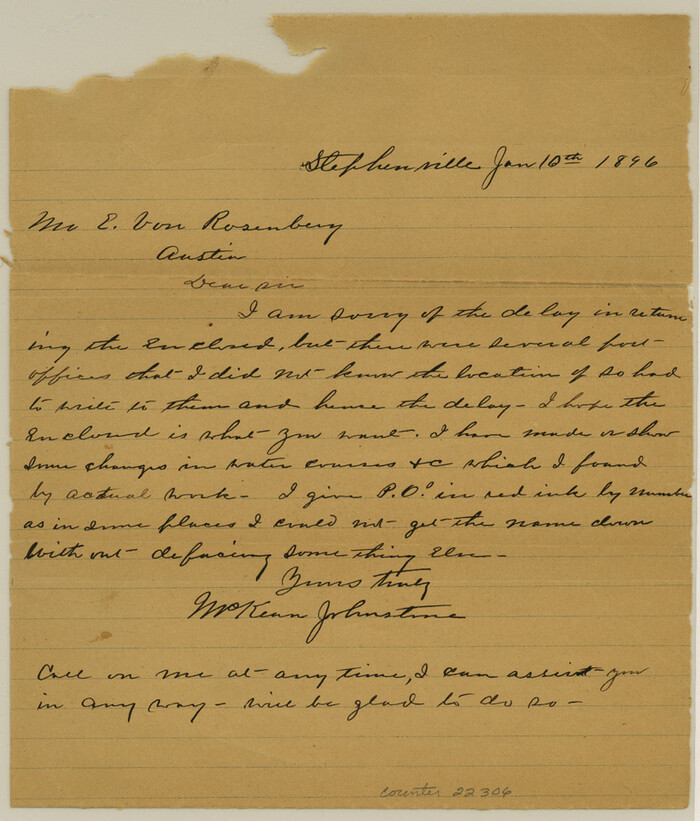 Stephenville Jan 10th 1896
Mr E. Von Rosenberg
Austin
Dear sir
I am sorry of the delay in return
ing the Enclosed, but there were several post
offices that I did not know the location of so had
to write to them and hense the delay - I hope the
Enclosed is what you want. I have made or show
some changes in water courses &c which I found
by actual work - I give P.O.s in red ink by number
as in some places I could not get the name down
without defacing some thing Else -
Yours truly
McKean Johnstone
Call on me at any time, I can assist you
in any way - will be glad to do so -
counter 22306